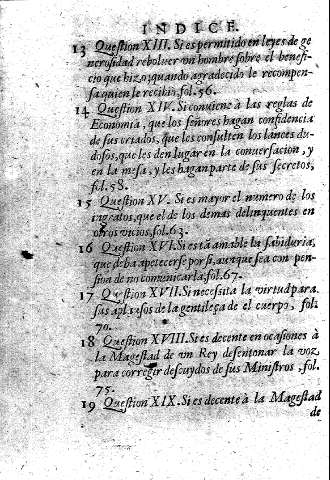 INDICE.
13 Question XIII. Si es permitido en leyes de ge
nerosidad rebolver un hombre sobre el benefi-
cio que hizo, quando agradecido le recompen-
sa quien le recibiò, fol. 56.
14 Question XIV. Si conviene à las reglas de
Economia, que los señores hagan confidencia
de sus criados, que les consulten los lances du-
dosos, que les den lugar en la conversacion, y
en la mesa, y les hagan parte de sus secretos,
fol. 58.
15 Question XV. Si es mayor el numero de los
ingratos, que el de los demàs delinquentes en
otros vicios, fol. 63.
16 Question XVI. Si està amable la sabiduria,
que deba apetecerse por sì, aunque sea con pen-
sion de no comunicarla, fol. 67.
17 Question XVII. Si necesita la virtud para
sus aplausos de la gentileça de el cuerpo, fol.
70.
18 Question XVIII. Si es decente en ocasiones à
la Magestad de un Rey desentonar la voz
para corregir descuydos de sus Ministros, fol.
75.
19 Question XIX. Si es decente à la Magestad
de